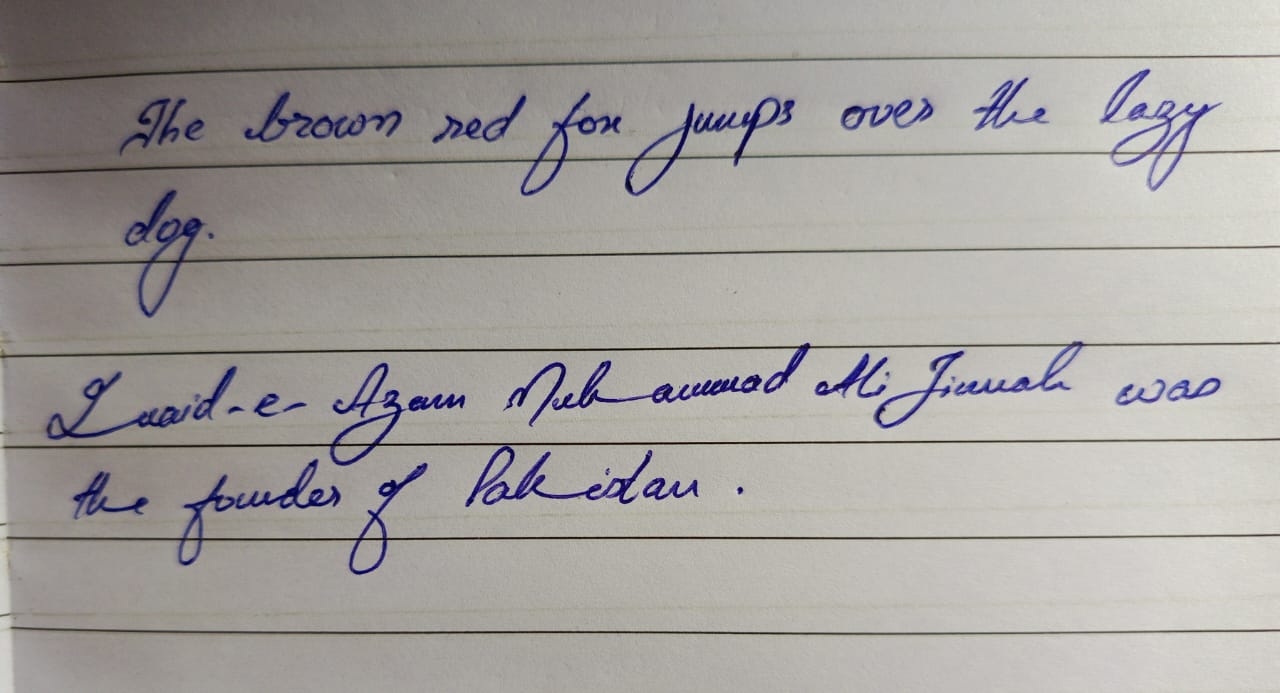 The brown red fox jumps over the lazy
dog.
Quaid-e-Azam Muhammad Ali Jinnah was
the founder of Pakistan.